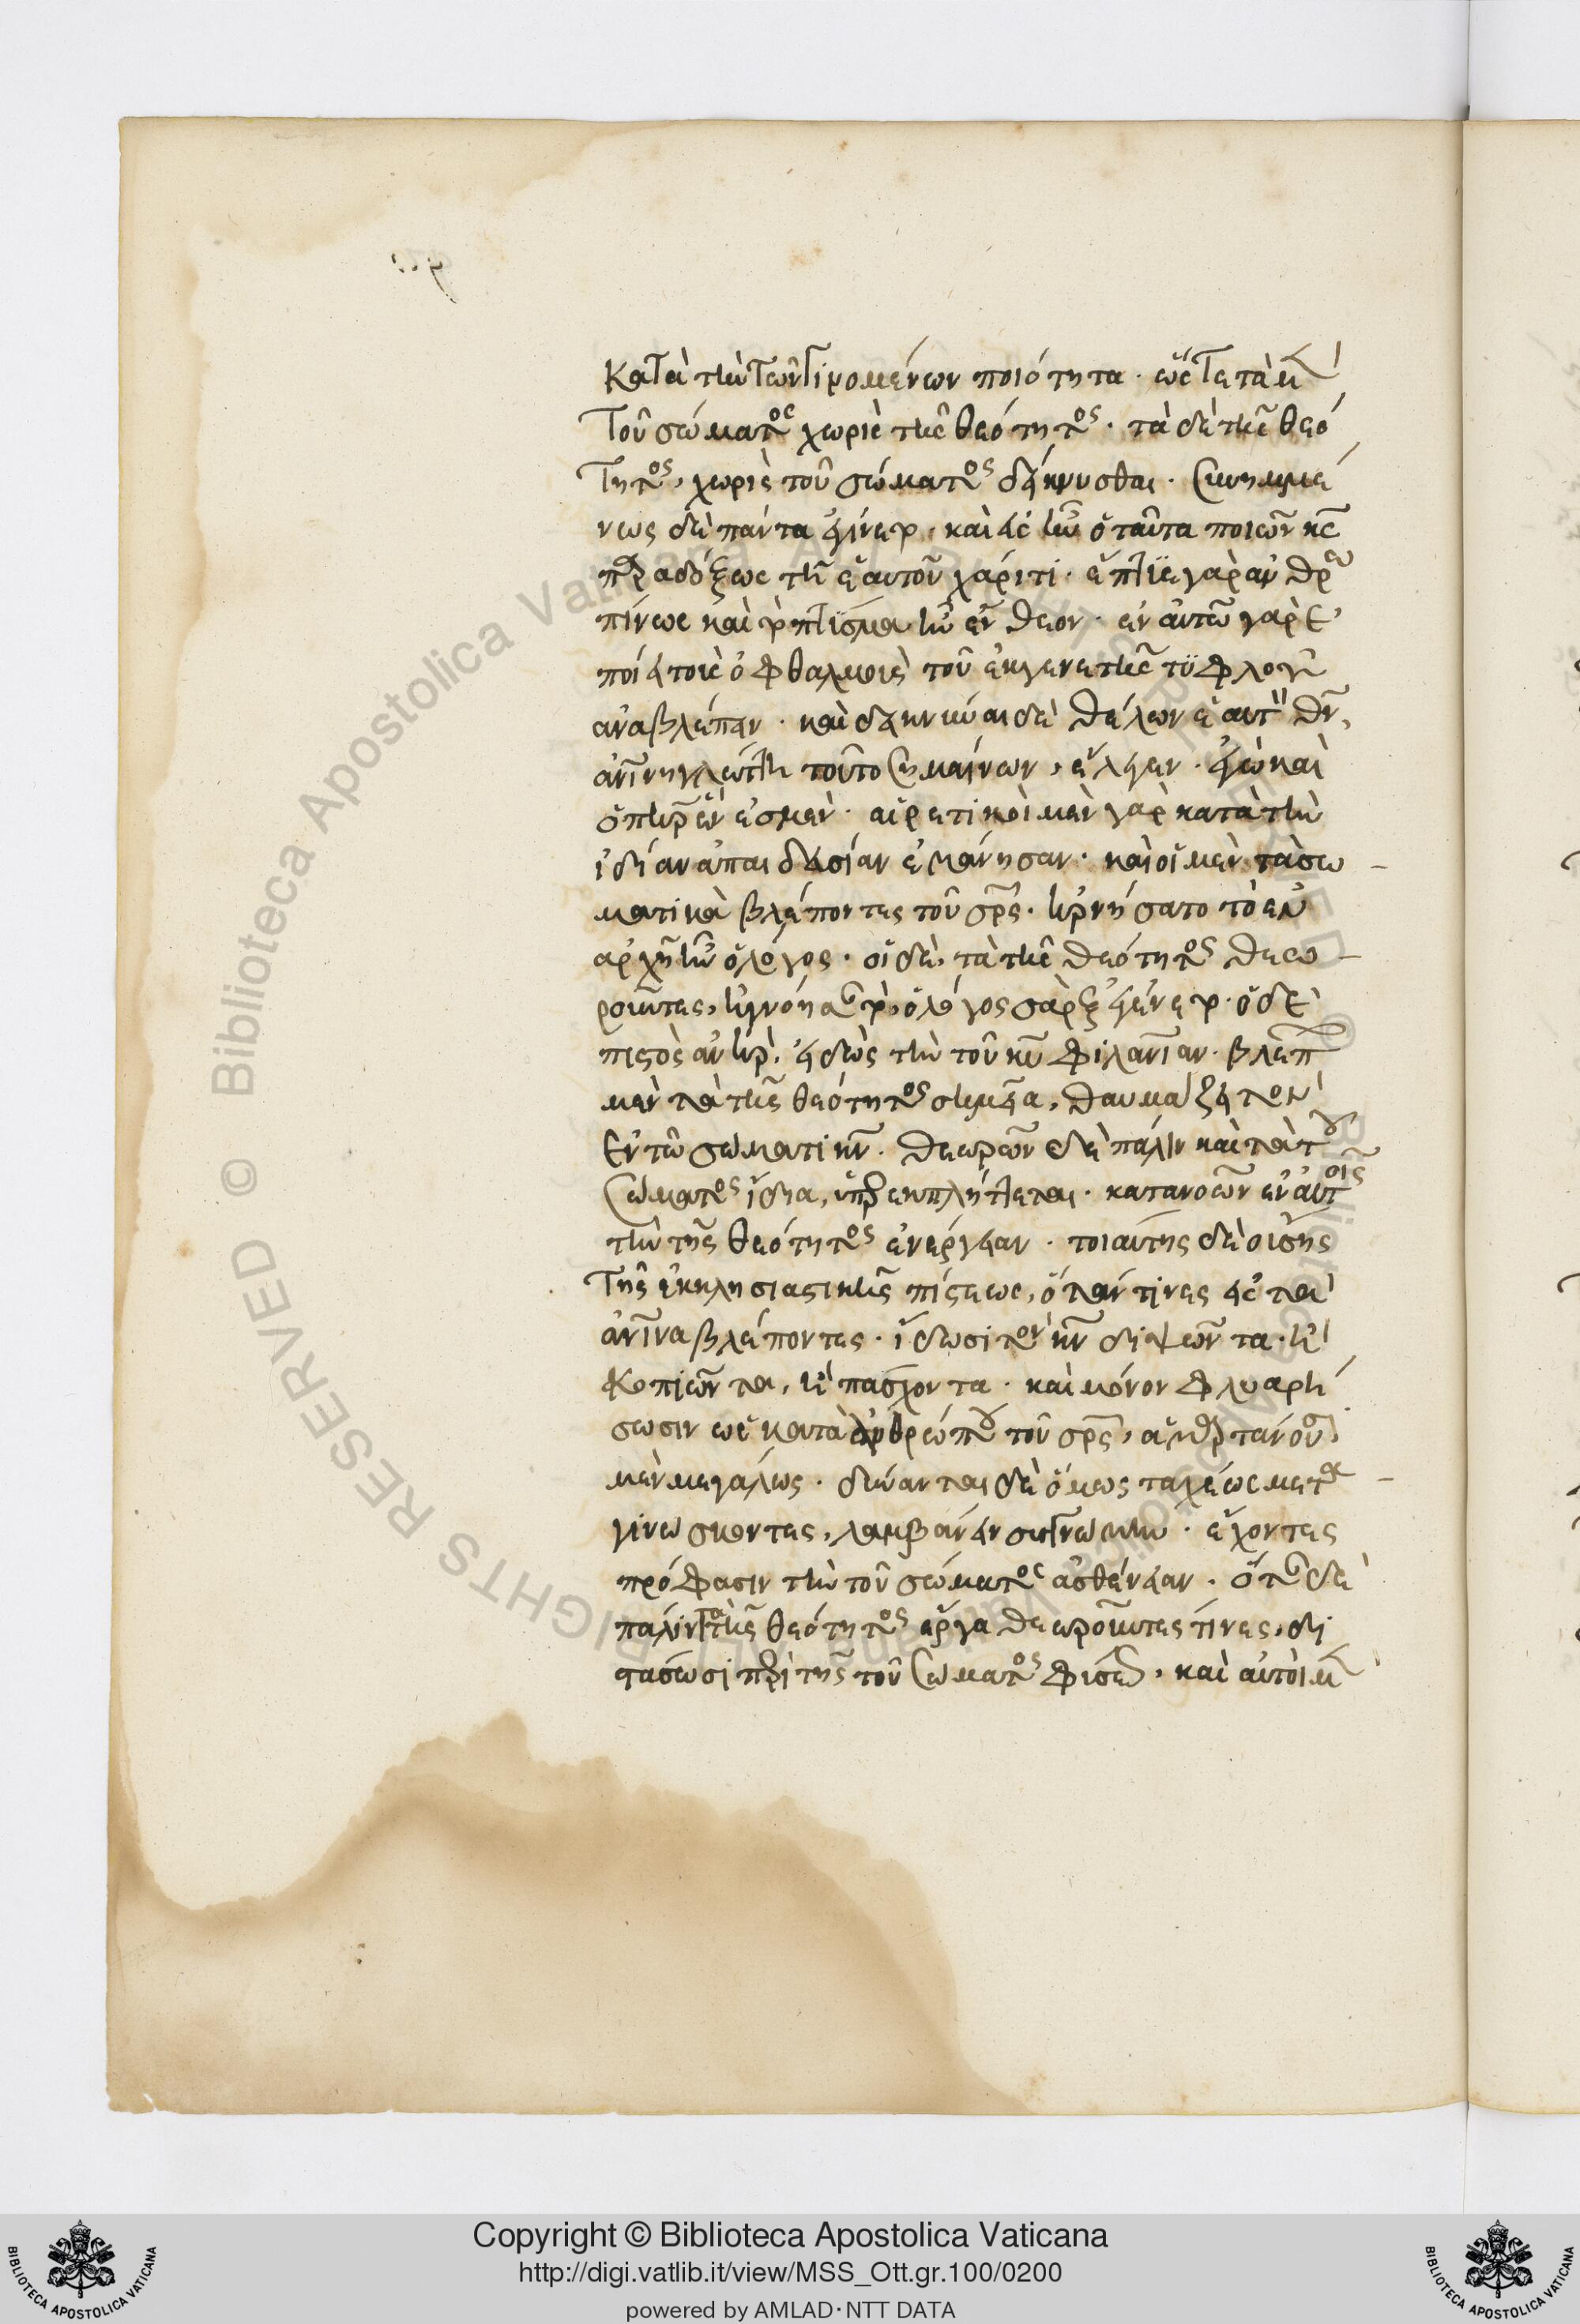 κατὰ τὴν τῶν γινομένων ποιότητα · ὥστε τὰ μὲν
τοῦ σώματος χωρὶς τῆς θεότητος · τὰ δὲ τῆς θεό
τητος, χωρὶς τοῦ σώματος δείκνυσθαι · συνημμέ
νως δὲ πάντα ἐγίνετο · καὶ εἷς ἦν ὁ ταῦτα ποιῶν κς
παραδόξως τῆ ἑαυτοῦ χάριτι · ἔπτυε γὰρ ἀνθρω
πίνως καὶ τὸ πτύσμα ἦν ἔνθεον · ἐν αὐτῶ γὰρ ἐ
ποίει τοὺς ὀφθαλμοὺς τοῦ ἐκ γενετῆς τυφλοῦ
ἀναβλέπειν · καὶ δεικνύναι δὲ θέλων ἑαυτὸν θν,
ἀνίνη γλώττη τοῦτο σημαίνων, ἔλεγεν · ἐγὼ καὶ
ὁ πηρ ἕν ἐσμεν · αἱρετικοὶ μὲν γὰρ κατὰ τὴν
ἰδίαν ἀπαιδευσίαν ἐμάνησαν · καὶ οἱ μὲν τὰ σω
ματικὰ βλέποντες τοῦ σρς · ἠρνήσαντο τὸ ἐν
ἀρχῆ ἦν ὁ λόγος · οἱ δὲ, τὰ τῆς θεότητος θεω
ροῦντες, ἠγνόησαν τὸ, ὁ λόγος σὰρξ ἐγένετο · ὁ δὲ
πιστὸς ἀνὴρ, εἰδὼς τὴν τοῦ κυ φιλανίαν · βλέπων
μὲν τὰ τῆς θεότητος σημεῖα, θαυμάζει τὸν
ἐν τῶ σώματι κν · θεωρῶν δὲ πάλιν καὶ τὰ τοῦ
σώματος ἴδια, ὑπερεκπλήττεται · κατανοῶν ἐν αὐτοῖς
τὴν τῆς θεότητος ἐνέργειαν · τοιαύτης δὲ οὔσης
τῆς ἐκκλησιαστικῆς πίστεως, ὅταν τινὲς εἰς τὰ
ἀνινα βλέποντες · ἴδωσι τὸν κν διψῶντα · ἢ
κοπιῶντα, ἢ πάσχοντα · καὶ μόνον φλυαρή
σωσιν ὡς κατὰ ἀνθρώπου τοῦ σρς, ἁμαρτάνουσι
μὲν μεγάλως · δύνανται δὲ ὅμως ταχέως μετα
γινώσκοντες, λαμβάνειν συγγνώμην · ἔχοντες
πρόφασιν τὴν τοῦ σώματος ἀσθένειαν · ὅταν δὲ
πάλιν τὰ τῆς θεότητος ἔργα θεωροῦντες τινὲς, δι
στάσωσι περὶ τῆς τοῦ σώματος φύσεως, καὶ αὐτοὶ μὲν
Copyright © Biblioteca Apostolica Vaticana
http://digi.vatlib.it/view/MSS_Ott.gr.100/0200
powered by AMLAD·NTT DATA